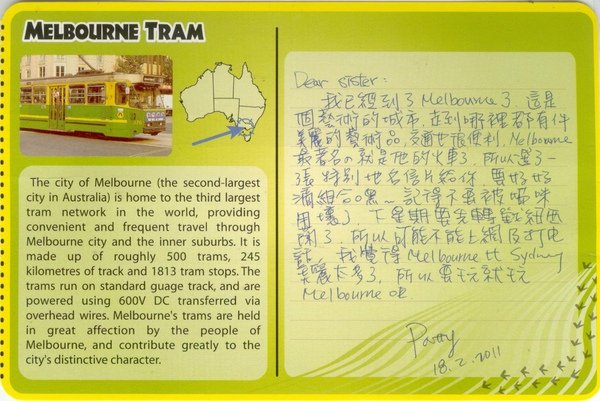 MELBOURNE TRAM
The city of Melbourne (the second-largest
city in Australia) is home to the third largest
tram network in the world, providing
convenient and frequent travel through
Melbourne city and the inner suburbs. It is
made up of roughly 500 trams, 245
kilometres of track and 1813 tram stops. The
trams run on standard guage track, and are
powered using 600V DC transferred via
overhead wires. Melbourne's trams are held
in great affection by the people of
Melbourne, and contribute greatly to the
city's distinctive character.
Dear sister:
我已經到了Melbourne了, 這是
個藝術的城市, 走到哪裡都有件
美麗的藝術品, 交通也很便利, Melbourne
最著名的就是他的火車了, 所以選了一
張特別地名信片給你, 要好好
組合唷~ 記得不要被喵咪
用壞了, 下星期要去轉駁紐西
蘭了, 所以可能不能上網及打電
話, 我覺得Melbourne比Sydney
美麗太多了, 所以要玩就玩
Melbourne OK
Patty
18.2.2011